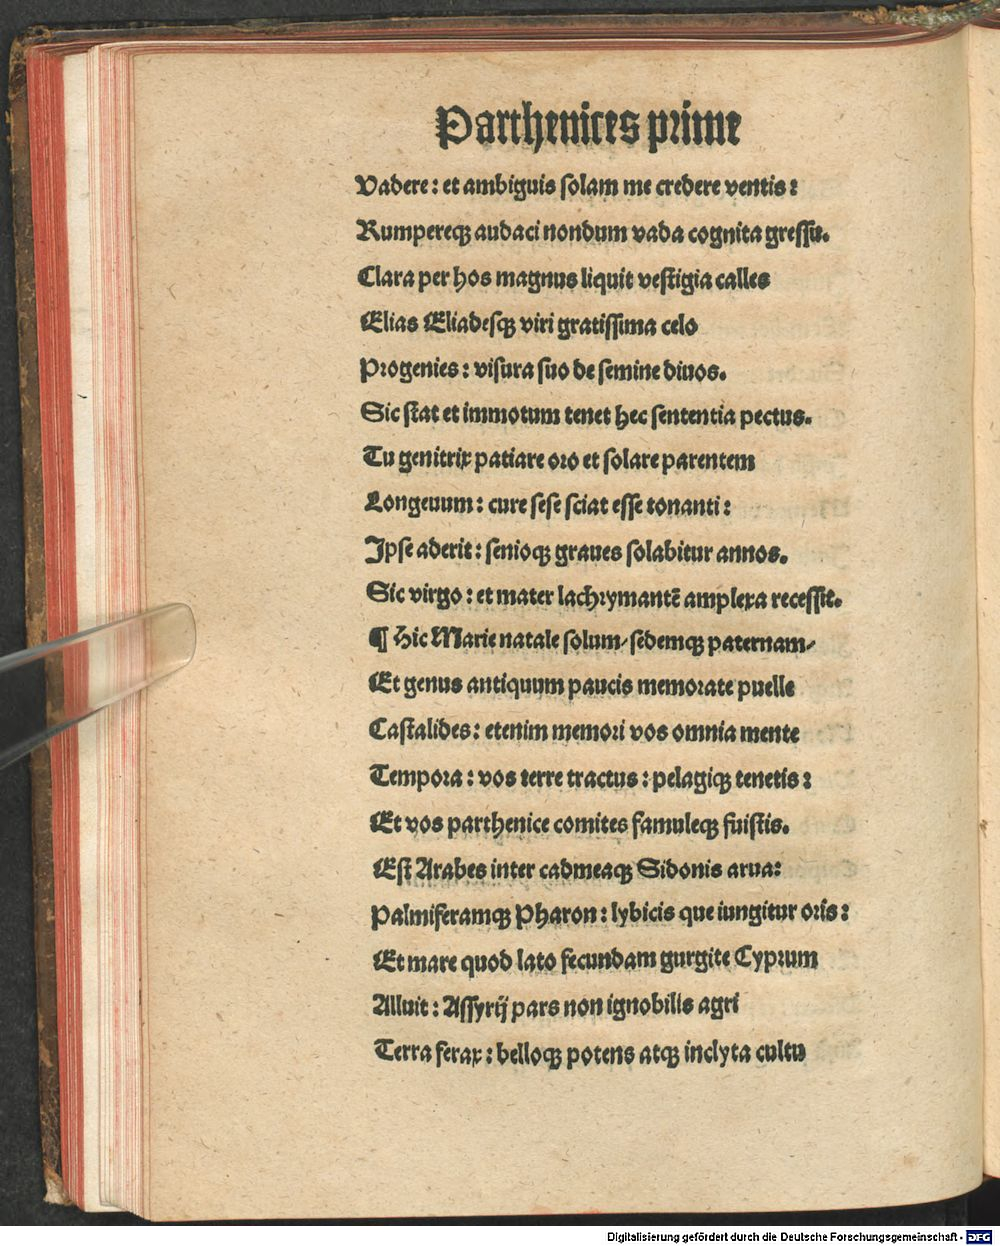 Parthenices prime
Vadere: et ambiguis solam me credere ventis:
Rumpereqꝫ audaci nondum vada cognita gressu.
Clara per hos magnus liquit vestigia calles
Elias Eliadesqꝫ viri gratissima celo
Progenies: visura suo de semine diuos.
Sic stat et immotum tenet hec sententia pectus.
Tu genitrix patiare oro et solare parentem
Longeuum: cure sese sciat esse tonanti:
Ipse aderit: senioqꝫ graues solabitur annos.
Sic virgo: et mater lachrymantē amplexa recessit.
¶ Hic Marie natale solum/ sedemqꝫ paternam/
Et genus antiquum paucis memorate puelle
Castalides: etenim memori vos omnia mente
Tempora: vos terre tractus: pelagiqꝫ tenetis:
Et vos parthenice comites famuleqꝫ fuistis.
Est Arabes inter cadmeaqꝫ Sidonis arua:
Palmiferamqꝫ Pharon: lybicis que iungitur oris:
Et mare quod lato fecundam gurgite Cyprum
Alluit: Assyrij pars non ignobilis agri
Terra ferax: belloqꝫ potens atqꝫ inclyta cultu
Digitalisierung gefördert durch die Deutsche Forschungsgemeinschaft - DFG